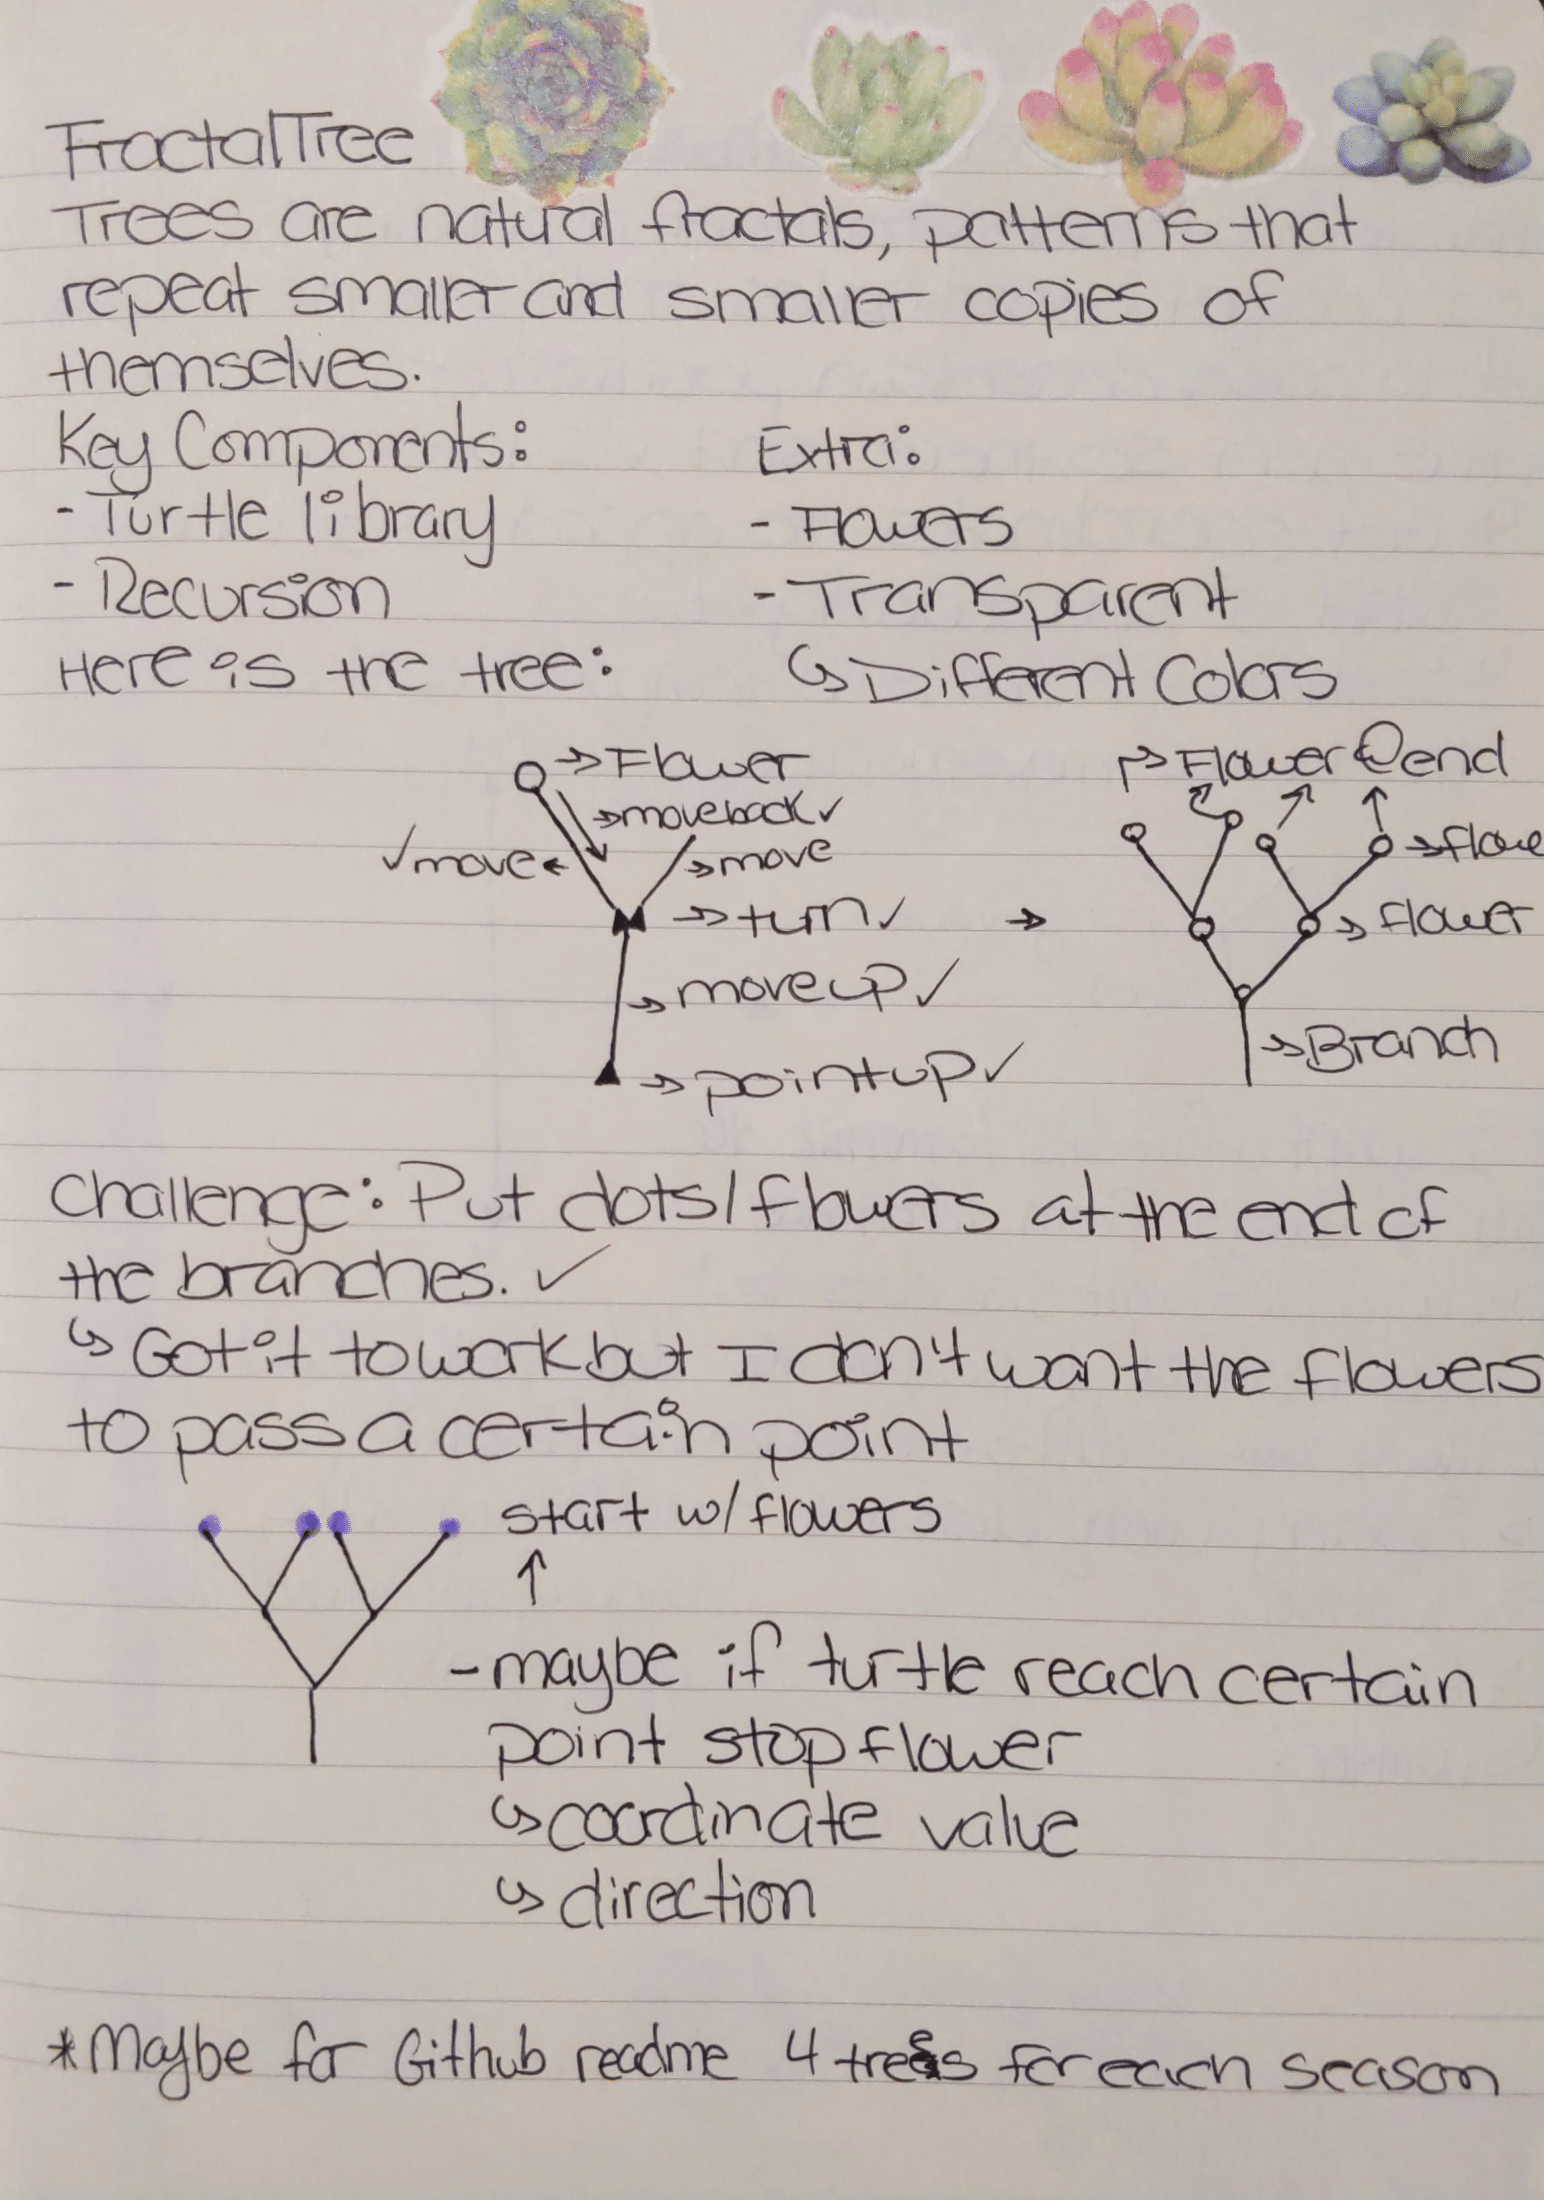 Fractal Tree
Trees are natural fractals, patterns that
repeat smaller and smaller copies of
themselves.
Key Components:
- Turtle library
- Recursion
Extra:
- Flowers
- Transparent
↳ Different Colors
Here is the tree:
→ Flower
→ move back ✓
✓ move ←
→ move
→ turn ✓
→ move up ✓
→ point up ✓
→
→ Flower @ end
→ flowe
→ flower
→ Branch
Challenge: Put dots/flowers at the end of
the branches. ✓
↳ Got it to work but I don't want the flowers
to pass a certain point
start w/ flowers
↑
- maybe if turtle reach certain
point stop flower
↳ coordinate value
↳ direction
* Maybe for Github readme 4 trees for each season